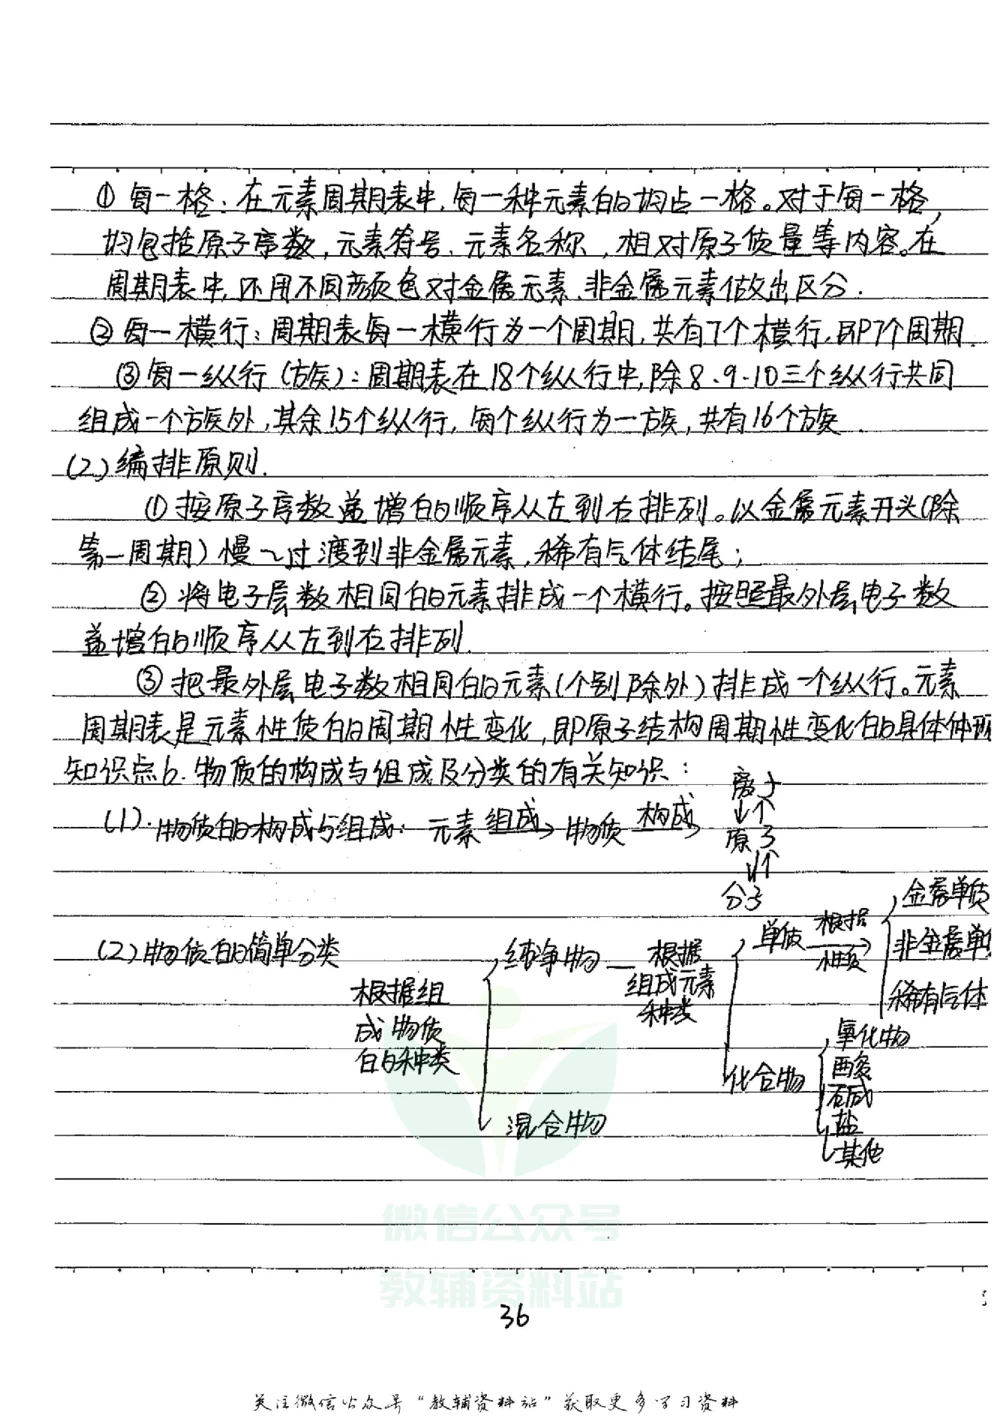 ①每一格：在元素周期表中，每一种元素的均占一格。对于每一格，
均包括原子序数，元素符号、元素名称，相对原子质量等内容。在
周期表中，还用不同颜色对金属元素、非金属元素做出区分．
②每一横行：周期表每一横行为一个周期，共有7个横行，即7个周期．
③每一纵行（族）：周期表在18个纵行中，除8、9、10三个纵行共同
组成一个族外，其余15个纵行，每个纵行为一族，共有16个族．
(2)编排原则．
①按原子序数递增的顺序从左到右排列。以金属元素开头（除
第一周期）慢~过渡到非金属元素，稀有气体结尾；
②将电子层数相同的元素排成一个横行。按照最外层电子数
递增的顺序从左到右排列．
③把最外层电子数相同的元素（个别除外）排成一个纵行。元素
周期表是元素性质的周期性变化，即原子结构周期性变化的具体体现
知识点6．物质的构成与组成及分类的有关知识：
(1)．物质的构成与组成：元素 组成→ 物质 构成
离子
↓↑
原子
↓↑
分子
(2)物质的简单分类
根据组
成物质
的种类
纯净物
混合物
根据
组成元素
种类
单质
化合物
根据
性质
金属单质
非金属单
稀有气体
氧化物
酸
碱
盐
其他
微信公众号
教辅资料站
36
关注微信公众号“教辅资料站”获取更多学习资料